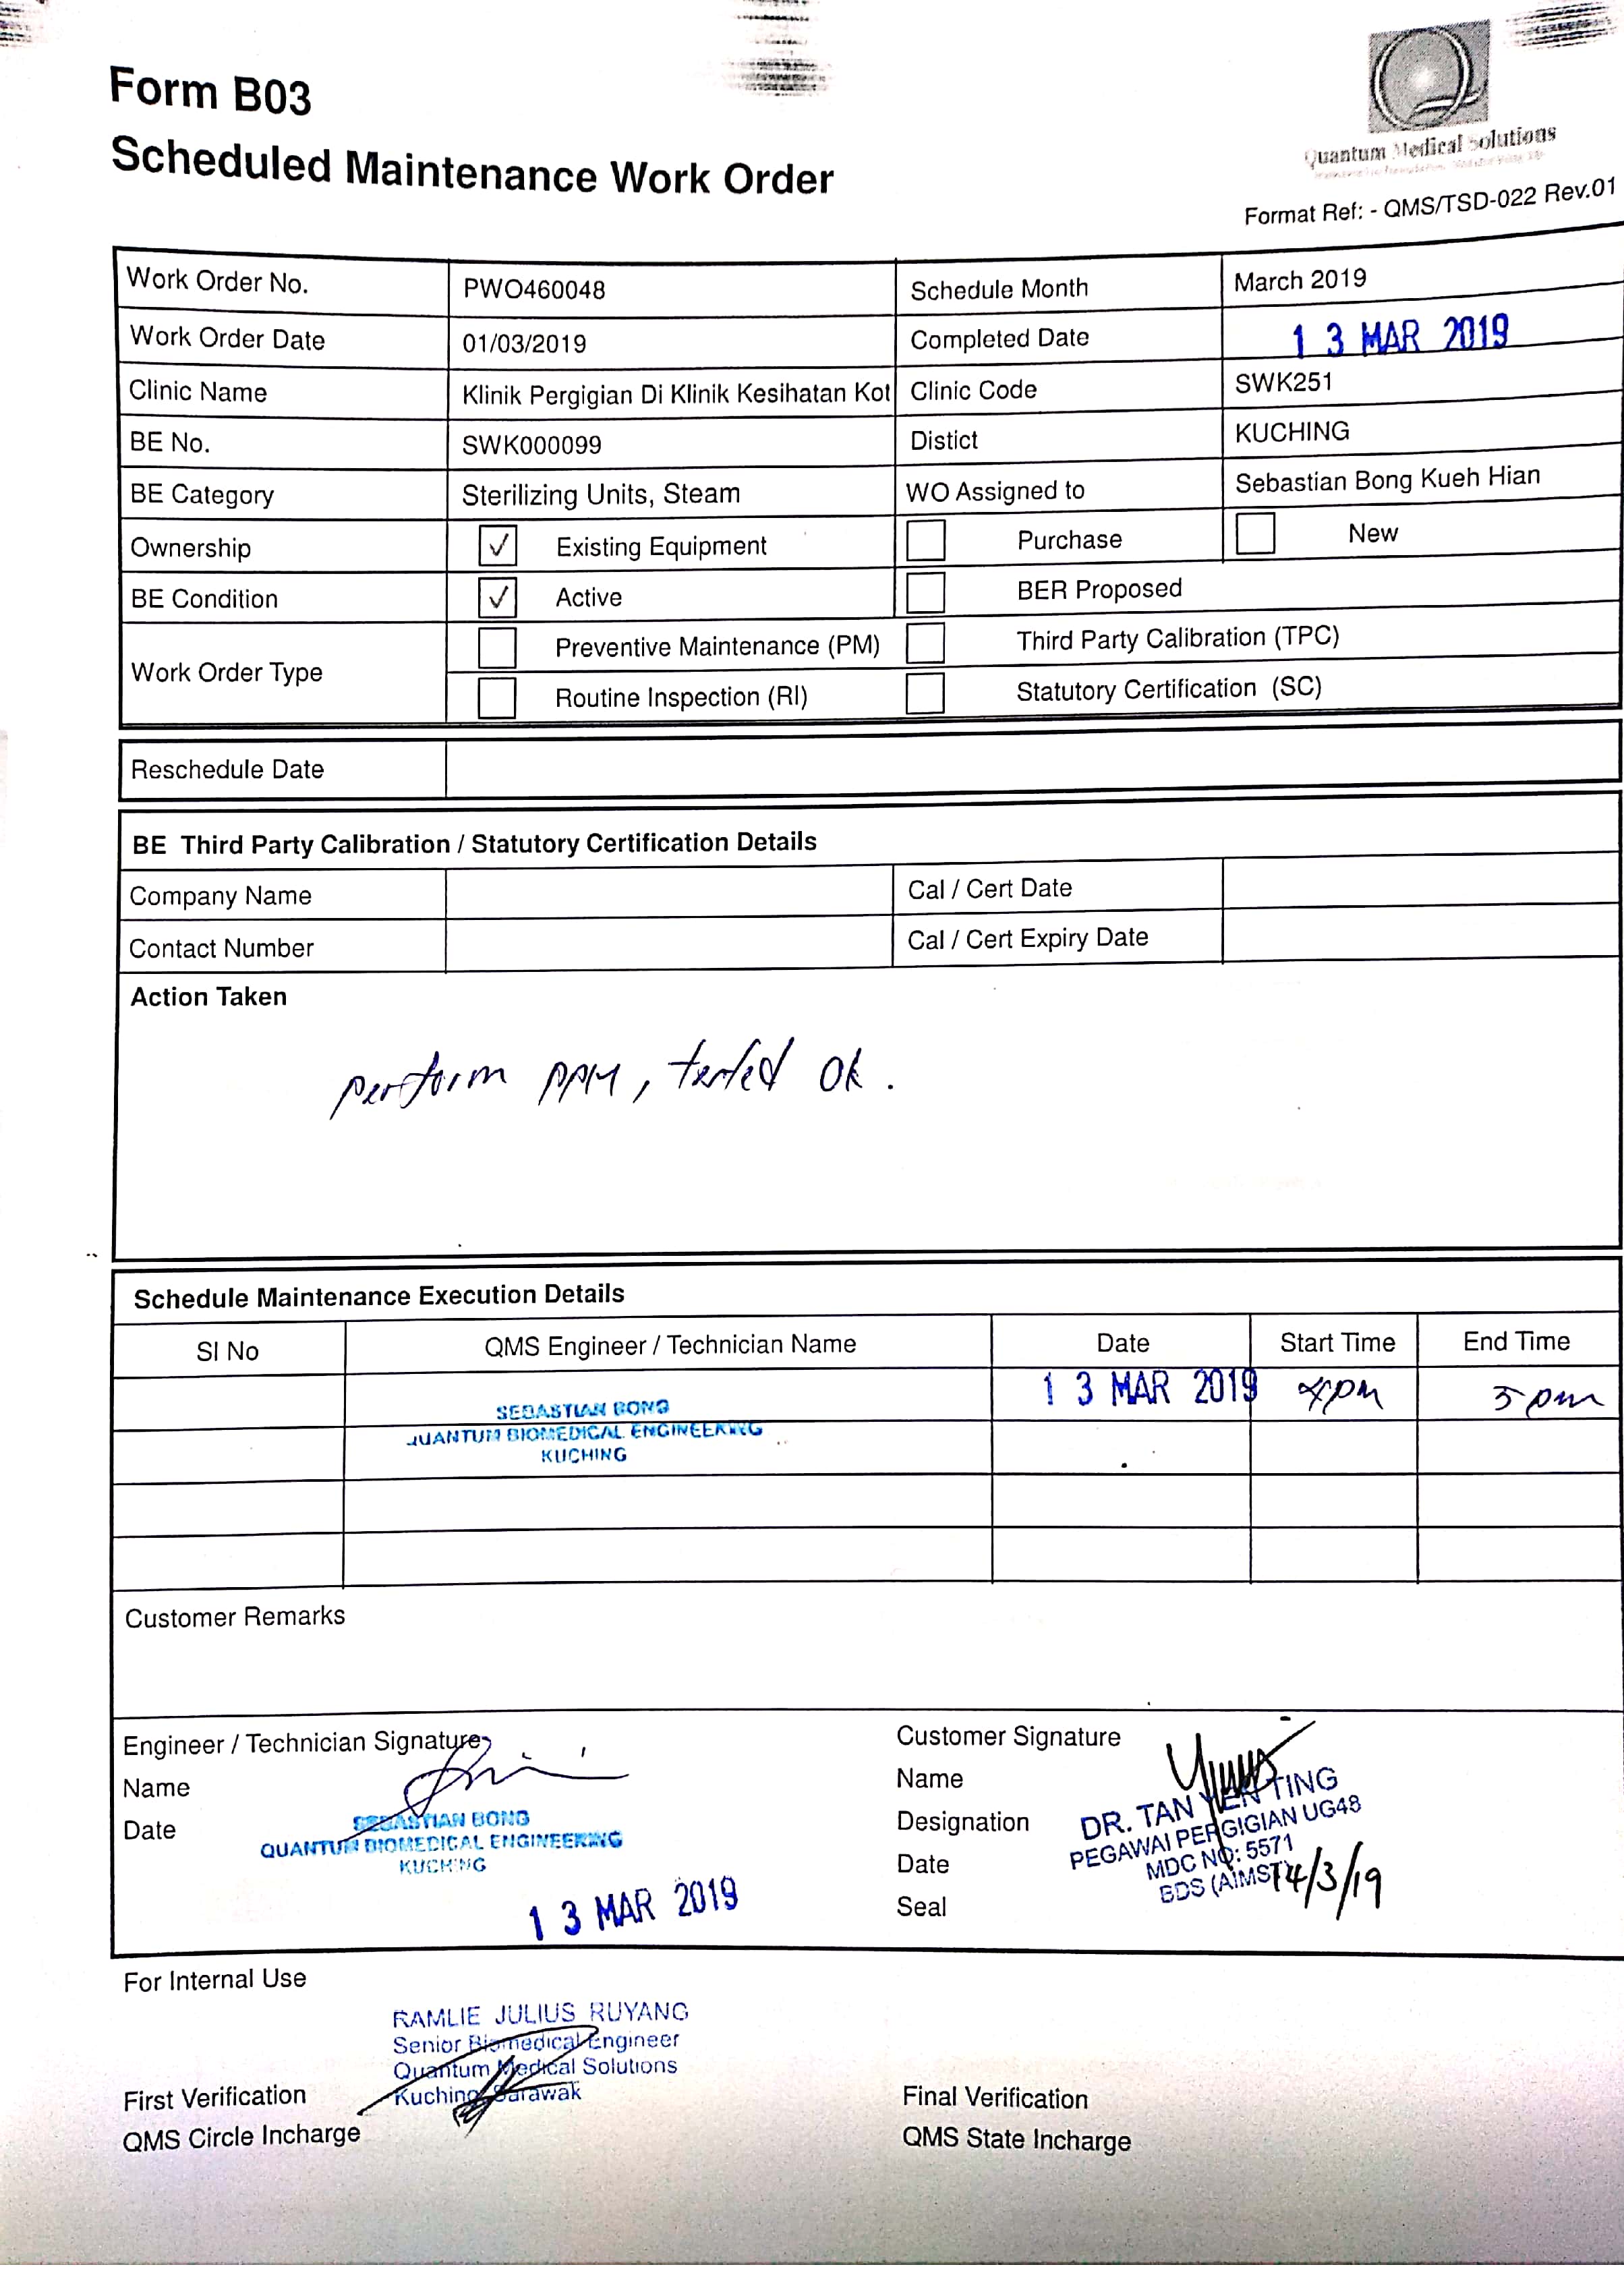 Form B03
Scheduled Maintenance Work Order
Quantum Medical Solutions
Format Ref: - QMS/TSD-022 Rev.01
Work Order No. PWO460048 Schedule Month March 2019
Work Order Date 01/03/2019 Completed Date 13 MAR 2019
Clinic Name Klinik Pergigian Di Klinik Kesihatan Kot Clinic Code SWK251
BE No. SWK000099 Distict KUCHING
BE Category Sterilizing Units, Steam WO Assigned to Sebastian Bong Kueh Hian
Ownership ✓ Existing Equipment Purchase New
BE Condition ✓ Active BER Proposed
Work Order Type
Preventive Maintenance (PM) Third Party Calibration (TPC)
Routine Inspection (RI) Statutory Certification (SC)
Reschedule Date
BE Third Party Calibration / Statutory Certification Details
Company Name Cal / Cert Date
Contact Number Cal / Cert Expiry Date
Action Taken
perform PPM, tested ok.
Schedule Maintenance Execution Details
SI No QMS Engineer / Technician Name Date Start Time End Time
13 MAR 2019 4pm 5pm
SEBASTIAN BONG
QUANTUM BIOMEDICAL ENGINEERING
KUCHING
Customer Remarks
Engineer / Technician Signature
Name
Date
SEBASTIAN BONG
QUANTUM BIOMEDICAL ENGINEERING
KUCHING
13 MAR 2019
Customer Signature
Name
Designation
Date
Seal
DR. TAN YEN TING
PEGAWAI PERGIGIAN UG48
MDC NO: 5571
BDS (AIMST)
14/3/19
For Internal Use
RAMLIE JULIUS RUYANG
Senior Biomedical Engineer
Quantum Medical Solutions
Kuching Sarawak
First Verification
QMS Circle Incharge
Final Verification
QMS State Incharge